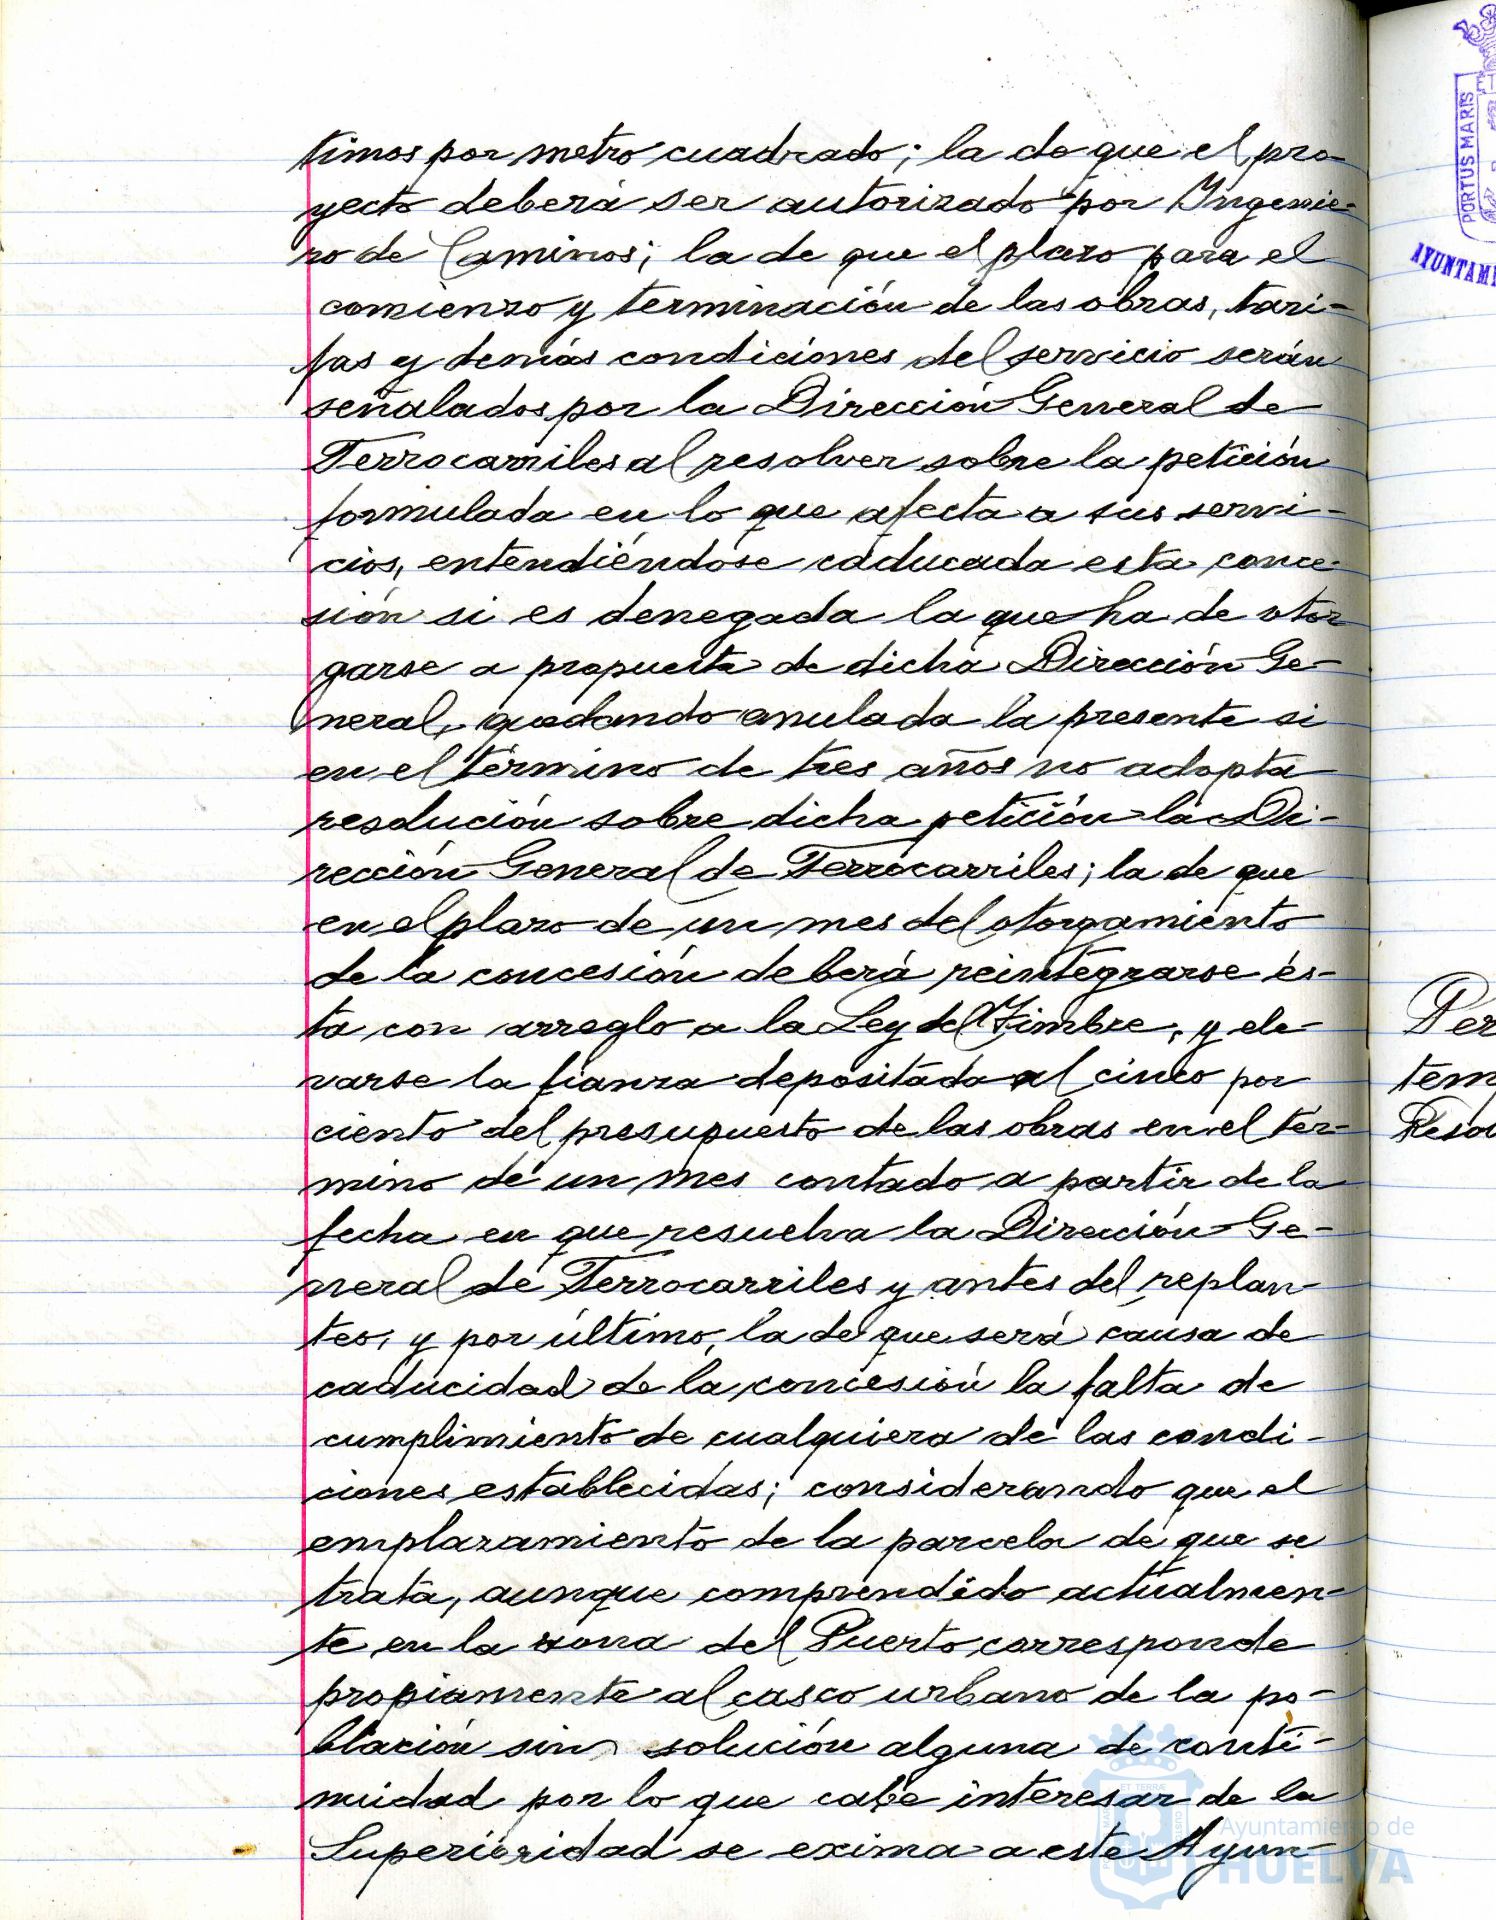 timos por metro cuadrado; la de que el pro-
yecto deberá ser autorizado por Ingenie-
ro de Caminos; la de que el plazo para el
comienzo y terminación de las obras, tari-
fas y demás condiciones del servicio serán
señalados por la Dirección General de
Ferrocarriles al resolver sobre la petición
formulada en lo que afecta a sus servi-
cios, entendiéndose caducada esta conce-
sión si es denegada la que ha de otor
garse a propuesta de dicha Dirección Ge-
neral, quedando anulada la presente si
en el término de tres años no adopta
resolución sobre dicha petición la Di-
rección General de Ferrocarriles; la de que
en el plazo de un mes del otorgamiento
de la concesión deberá reintegrarse és-
ta con arreglo a la Ley del Timbre, y ele-
varse la fianza depositada al cinco por
ciento del presupuesto de las obras en el tér-
mino de un mes contado a partir de la
fecha en que resuelva la Dirección Ge-
neral de Ferrocarriles y antes del replan-
teo, y por último, la de que será causa de
caducidad de la concesión la falta de
cumplimiento de cualquiera de las condi-
ciones establecidas; considerando que el
emplazamiento de la parcela de que se
trata, aunque comprendido actualmen-
te en la zona del Puerto corresponde
propiamente al casco urbano de la po-
blación sin solución alguna de conti-
nuidad por lo que cabe interesar de la
Superioridad se exima a este Ayun-
PORTUS MARIS
AYUNTAMI
Per
tem
Reso
Ayuntamiento de
HUELVA